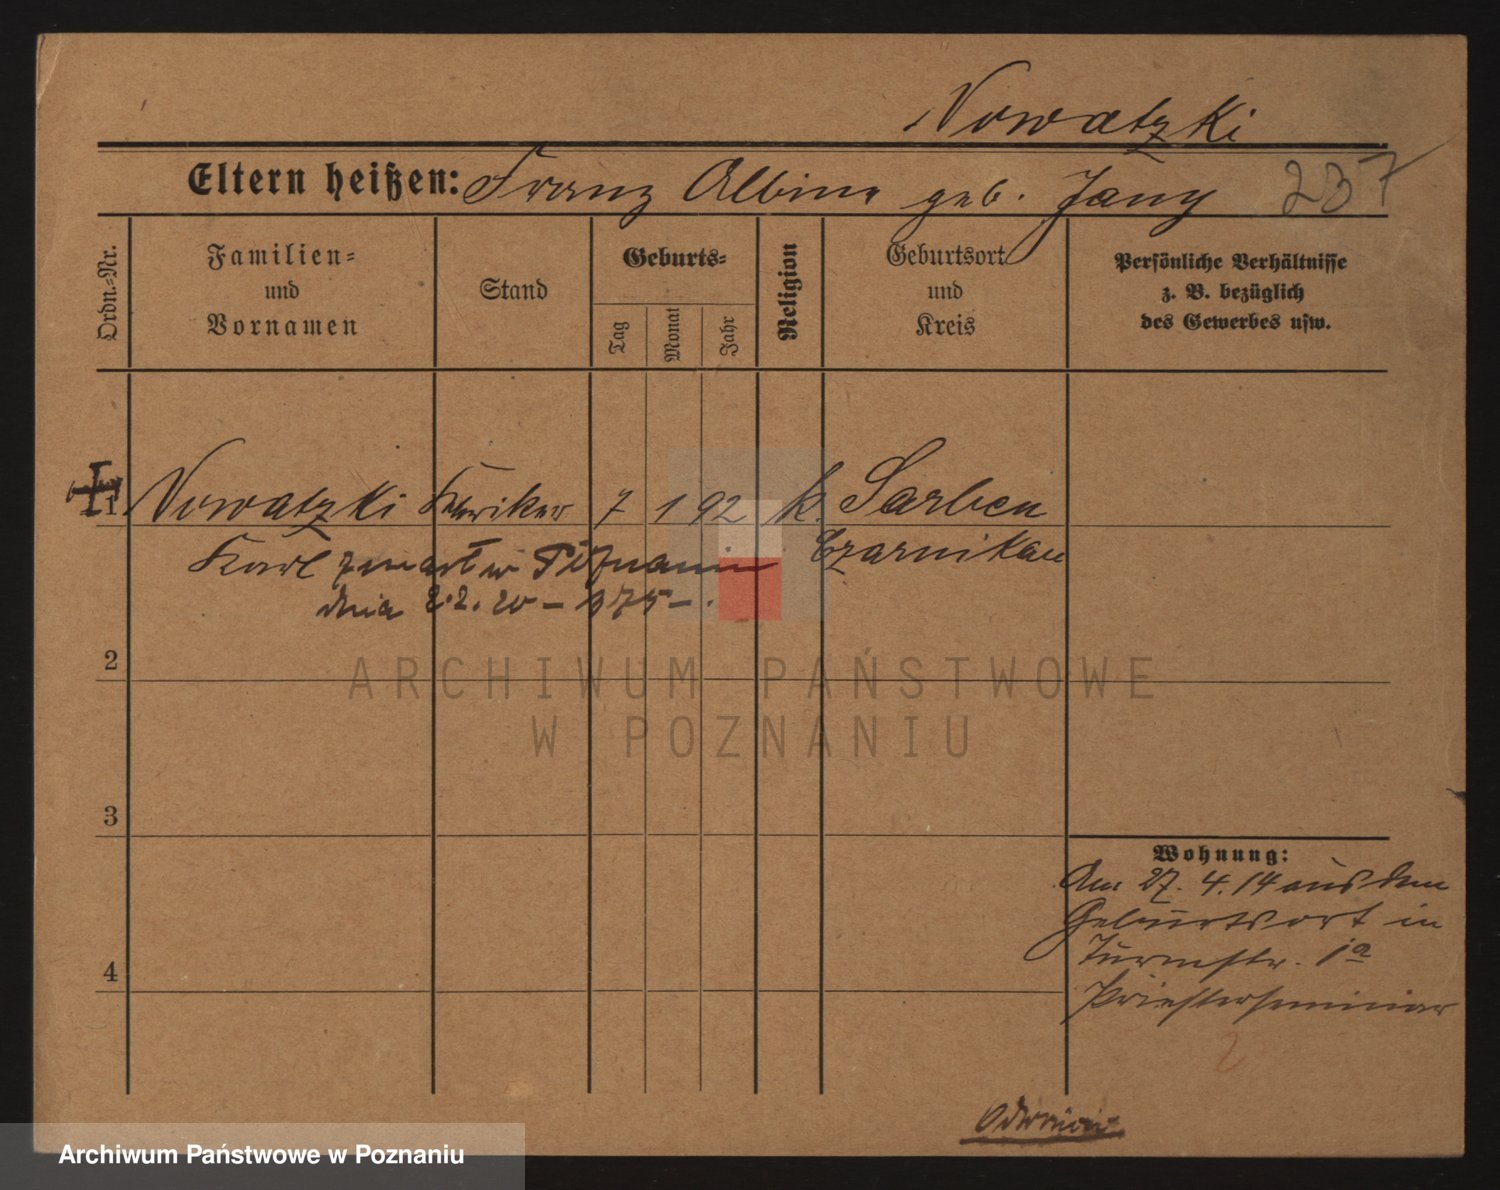 Nowatzki
Eltern heißen: Franz Albina geb. Jany 237
Ordn.-Nr.
Familien-
und
Vornamen
Stand
Geburts-
Tag
Monat
Jahr
Religion
Geburtsort
und
Kreis
Persönliche Verhältnisse
z. B. bezüglich
des Gewerbes usw.
1 Nowatzki Kleriker 7 1 92 k. Sarben
Karl zmarł w Poznaniu Czarnikau
dnia 2.2.20 – 175 –.
2
ARCHIWUM PAŃSTWOWE
W POZNANIU
3
4
Wohnung:
Am 27. 4. 14 aus dem
Geburtsort in
Turmstr. 1a
Priesterseminar
2
Archiwum Państwowe w Poznaniu